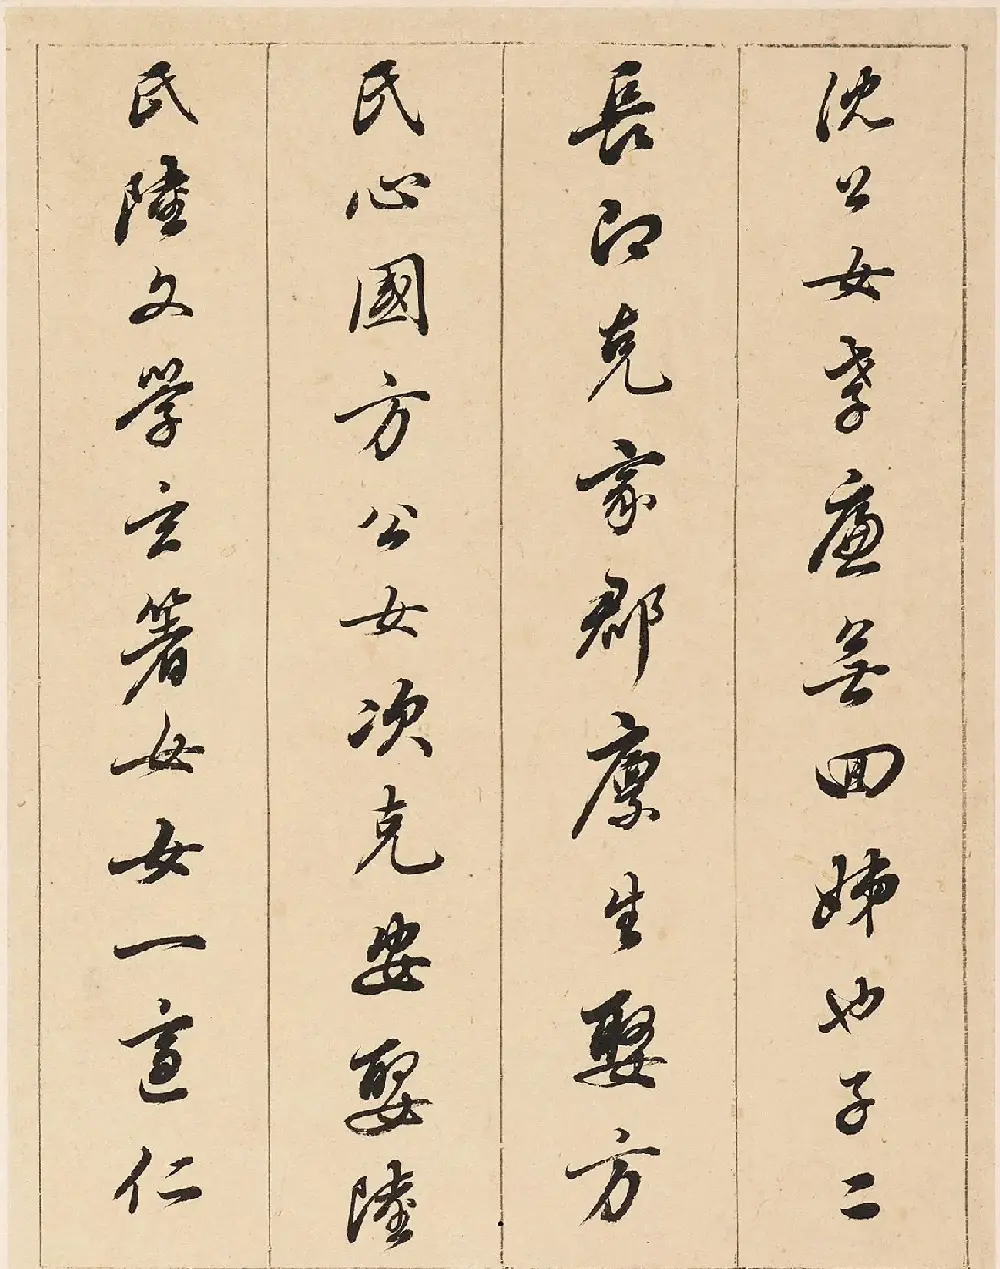 沈公女孝廉無回姊也子二
長即克家郡廩生娶方
氏心國方公女次克娶陸
氏陸文學玄著女女一適仁